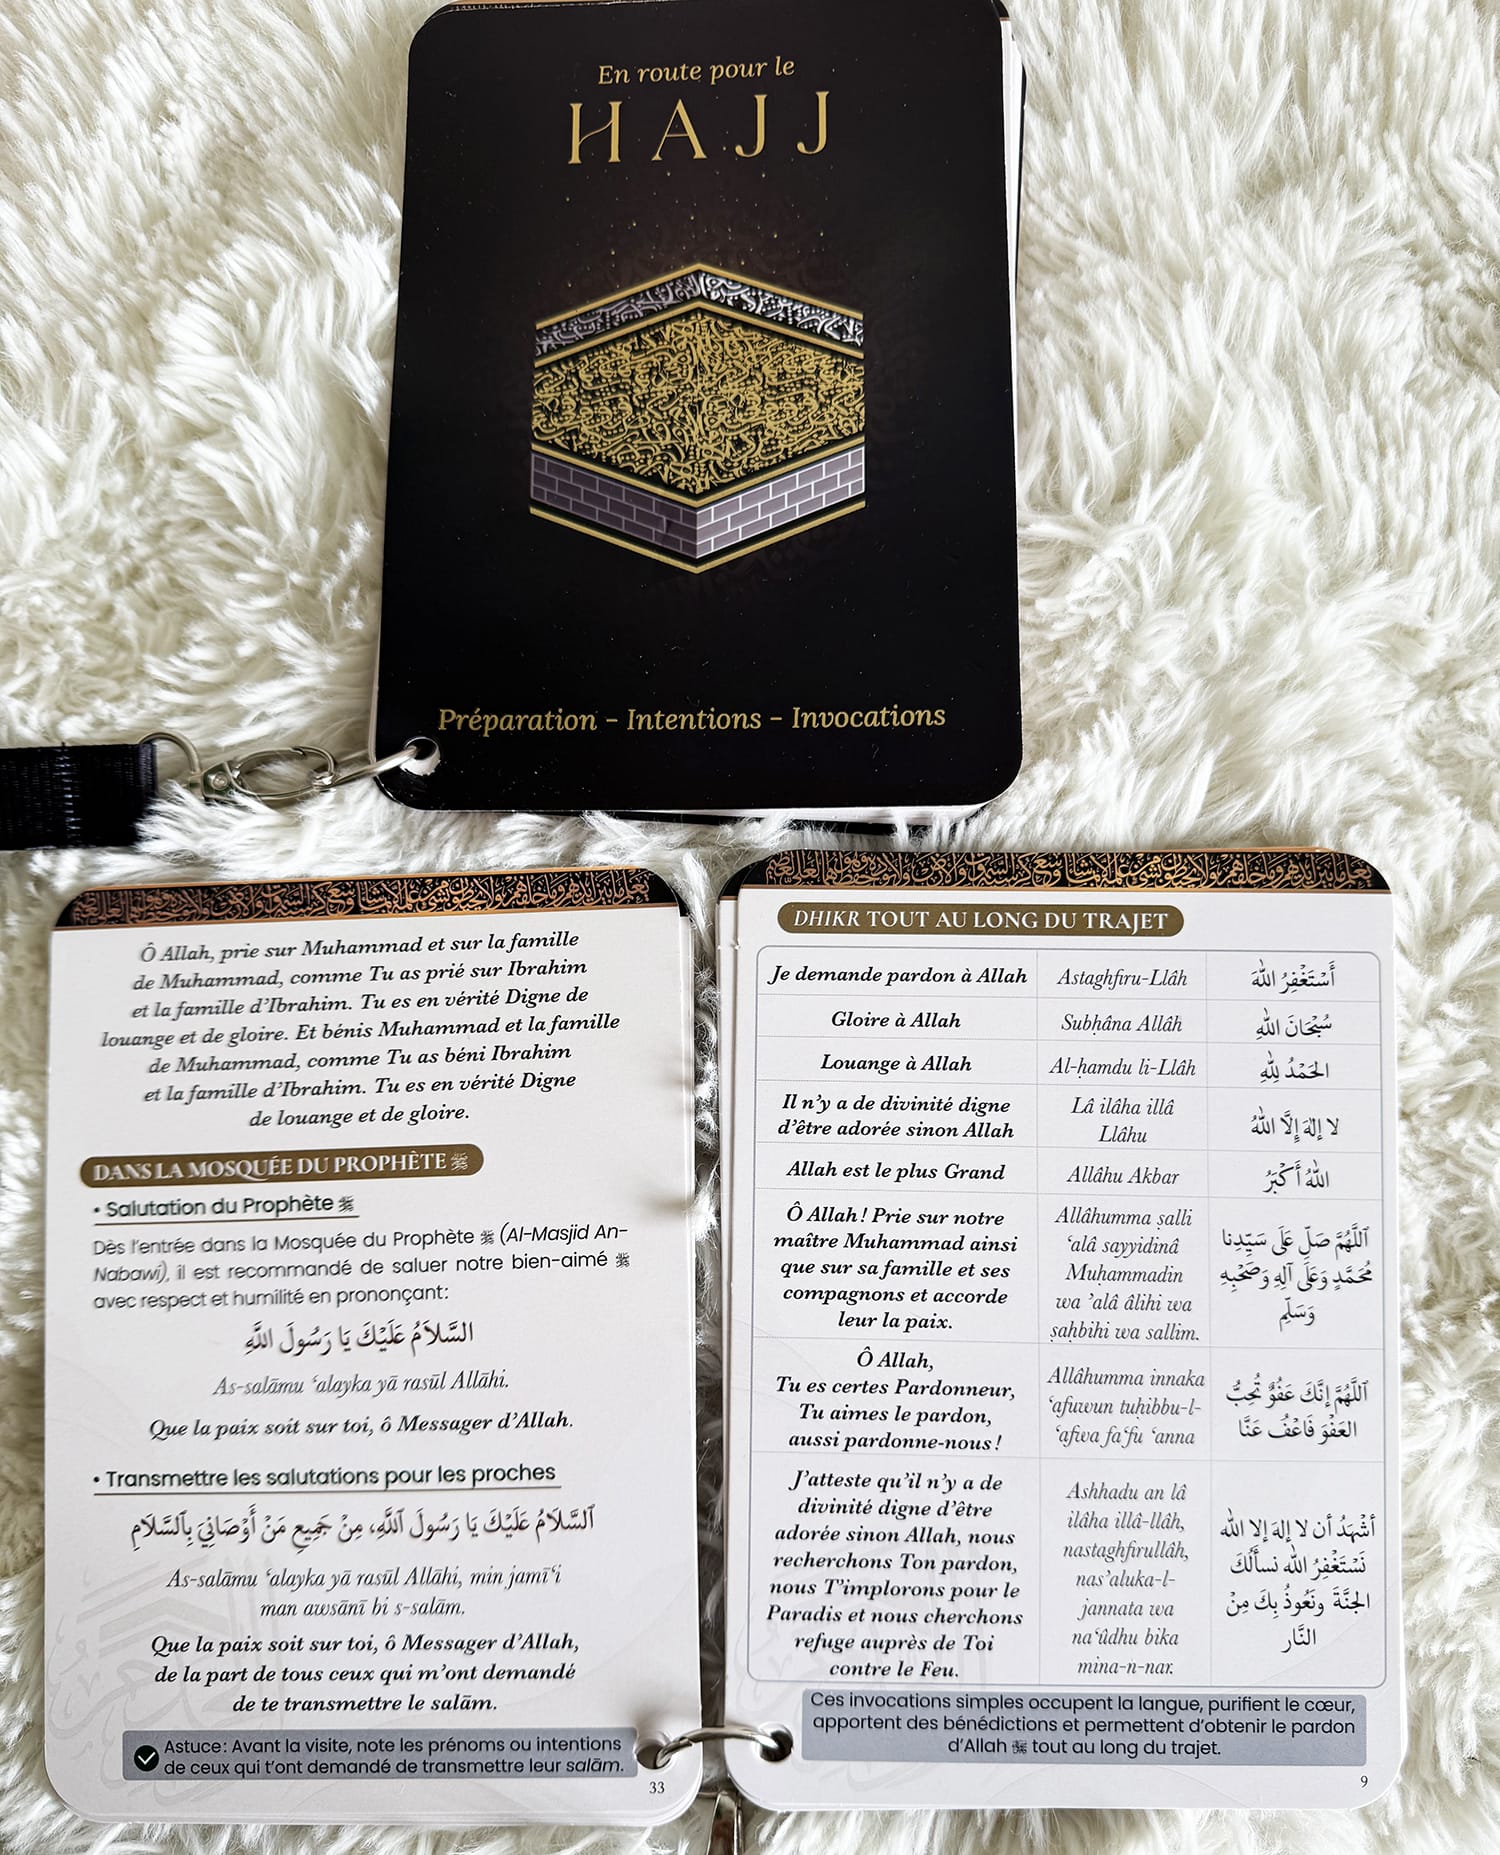 En route pour le
HAJJ
Préparation - Intentions - Invocations
Ô Allah, prie sur Muhammad et sur la famille
de Muhammad, comme Tu as prié sur Ibrahim
et la famille d'Ibrahim. Tu es en vérité Digne de
louange et de gloire. Et bénis Muhammad et la famille
de Muhammad, comme Tu as béni Ibrahim
et la famille d'Ibrahim. Tu es en vérité Digne
de louange et de gloire.
DANS LA MOSQUÉE DU PROPHÈTE ﷺ
• Salutation du Prophète ﷺ
Dès l'entrée dans la Mosquée du Prophète ﷺ (Al-Masjid An-
Nabawi), il est recommandé de saluer notre bien-aimé ﷺ
avec respect et humilité en prononçant:
السَّلَامُ عَلَيْكَ يَا رَسُولَ اللَّهِ
As-salāmu ‘alayka yā rasūl Allāhi.
Que la paix soit sur toi, ô Messager d'Allah.
• Transmettre les salutations pour les proches
ٱلسَّلَامُ عَلَيْكَ يَا رَسُولَ ٱللَّهِ، مِنْ جَمِيعِ مَنْ أَوْصَانِيَ بِٱلسَّلَامِ
As-salāmu ‘alayka yā rasūl Allāhi, min jamī‘i
man awsānī bi s-salām.
Que la paix soit sur toi, ô Messager d'Allah,
de la part de tous ceux qui m'ont demandé
de te transmettre le salām.
Astuce: Avant la visite, note les prénoms ou intentions
de ceux qui t'ont demandé de transmettre leur salām.
33
DHIKR TOUT AU LONG DU TRAJET
Je demande pardon à Allah Astaghfiru-Llâh أَسْتَغْفِرُ اللهَ
Gloire à Allah Subḥâna Allâh سُبْحَانَ اللهِ
Louange à Allah Al-ḥamdu li-Llâh الحَمْدُ لِلَّهِ
Il n'y a de divinité digne Lâ ilâha illâ لا إِلَهَ إِلَّا اللهُ
d'être adorée sinon Allah Llâhu
Allah est le plus Grand Allâhu Akbar اللهُ أَكْبَرُ
Ô Allah! Prie sur notre Allâhumma ṣalli ٱللَّهُمَّ صَلِّ عَلَى سَيِّدِنا
maître Muhammad ainsi ‘alâ sayyidinâ مُحَمَّدٍ وَعَلَى آلِهِ وَصَحْبِهِ
que sur sa famille et ses Muḥammadin وَسَلِّم
compagnons et accorde wa 'alâ âlihi wa
leur la paix. ṣaḥbihi wa sallim.
Ô Allah, Allâhumma innaka ٱللَّهُمَّ إِنَّكَ عَفُوٌّ تُحِبُّ
Tu es certes Pardonneur, ‘afuwun tuḥibbu-l- العَفْوَ فَاعْفُ عَنَّا
Tu aimes le pardon, ‘afwa fa‘fu ‘anna
aussi pardonne-nous!
J'atteste qu'il n'y a de Ashhadu an lâ أشْهَدُ أن لا إلهَ إلا الله
divinité digne d'être ilâha illâ-llâh, نَسْتَغْفِرُ الله نسألُكَ
adorée sinon Allah, nous nastaghfirullâh, الجنَّةَ ونَعُوذُ بِكَ مِنْ
recherchons Ton pardon, nas'aluka-l- النَّار
nous T'implorons pour le jannata wa
Paradis et nous cherchons na‘ûdhu bika
refuge auprès de Toi mina-n-nar.
contre le Feu.
Ces invocations simples occupent la langue, purifient le cœur,
apportent des bénédictions et permettent d'obtenir le pardon
d'Allah ﷻ tout au long du trajet.
9